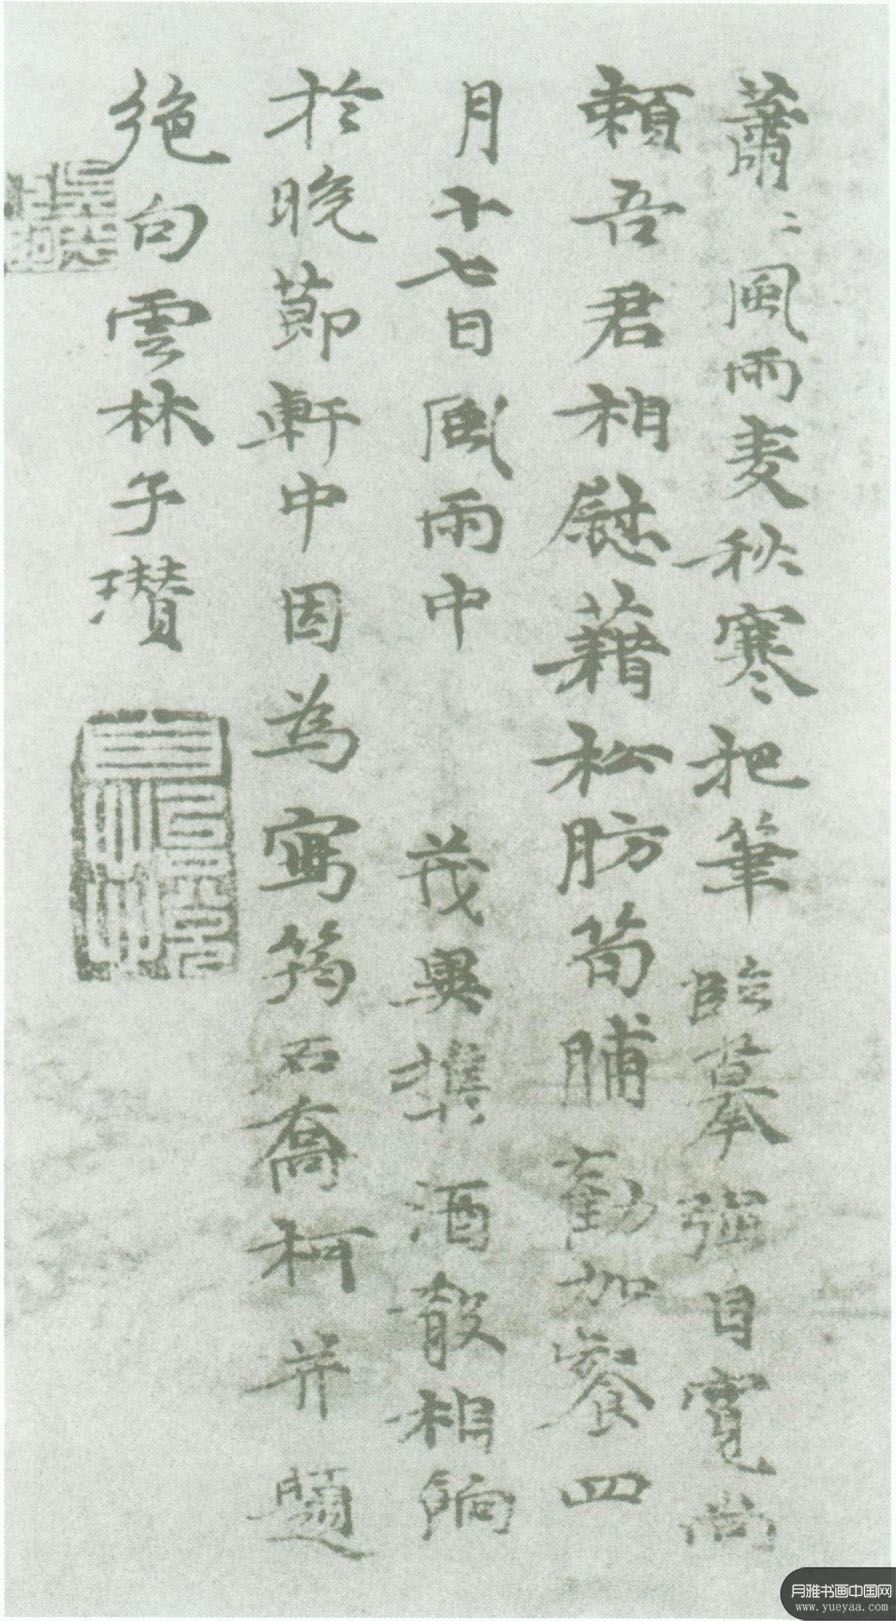 蕭〻風雨麦秋寒把筆臨摹強自寬尚
賴吾君相慰藉松肪筍脯勸加餐四
月十七日風雨中 茂異攜酒殽相餉
於晚節軒中因為寫筠石喬柯并題
絶句雲林子瓚
月雅书画中国网
www.yueyaa.com